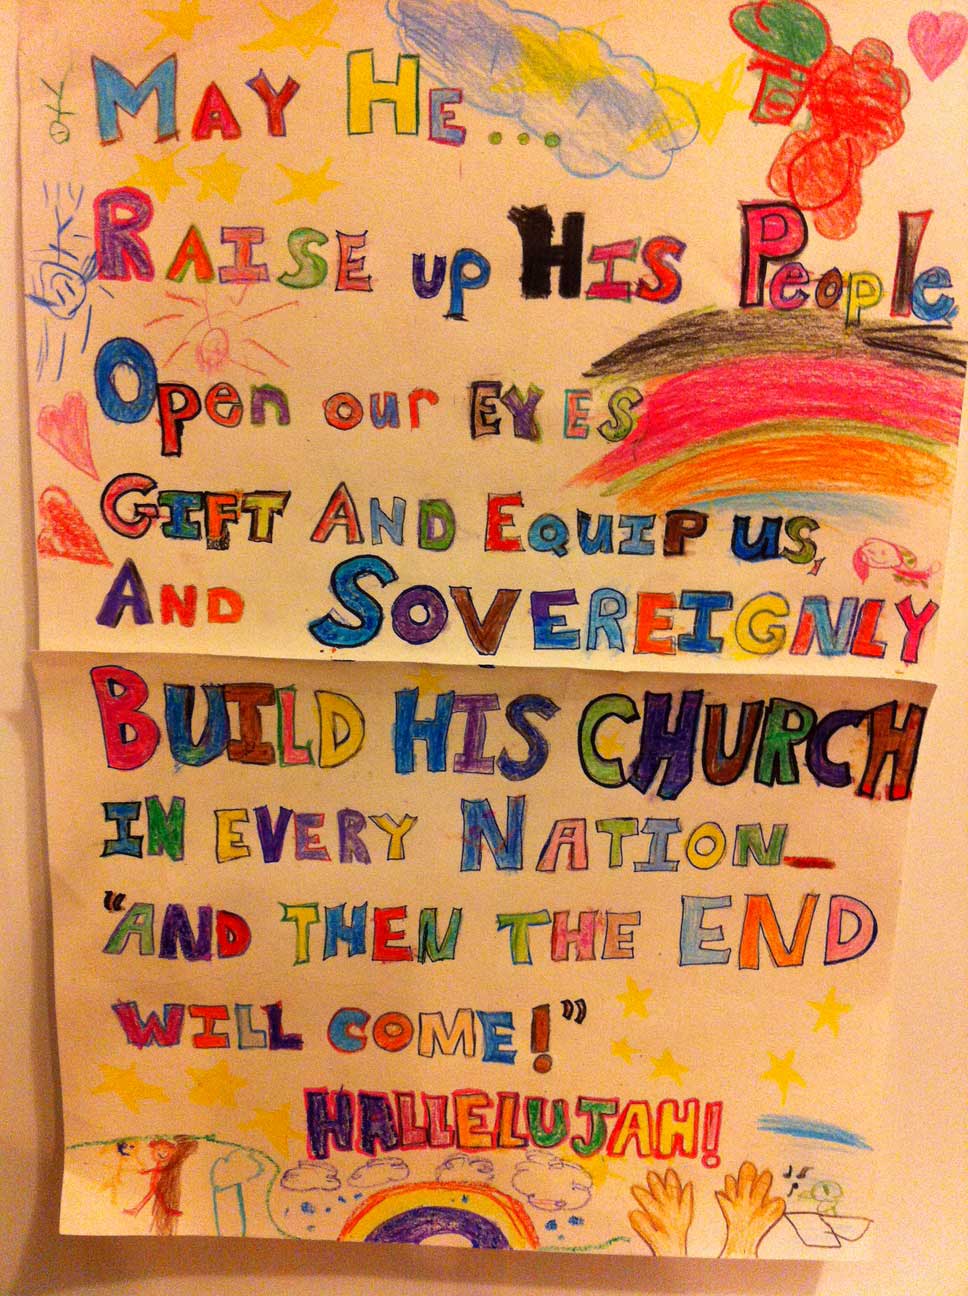 MAY HE...
RAISE UP HIS People
Open our EYES
GIFT AND EQUIP US,
AND SOVEREIGNLY
BUILD HIS CHURCH
IN EVERY NATION_
"AND THEN THE END
WILL COME!"
HALLELUJAH!